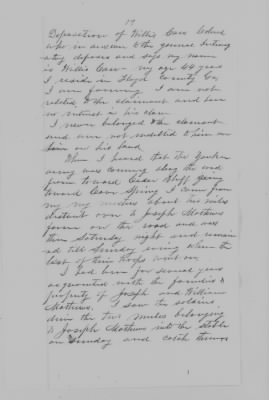 17
Deposition of Willis Care Colored
who in answer to the general Interog
atory deposes and says my name
is Willis Care my age 44 years
I reside in Floyd County Ga
I am farming I am not
related to the claimant and have
no interest in his claim
I never belonged to the claimant
and am not indebted to him or
live on his land.
When I heard that the Yankee
army was coming along the road
from toward Cedar Bluff going
toward Cave Spring I came from
my my about two miles
distant over to Joseph Mathews
on the road and was
there Saturday night and remain
ed till Sunday evening when the
last of their troops went on
I had been for several years
acquainted with the families &
property of Joseph and William
Mathews. I saw the soldiers
drive the two mules belonging
to Joseph Mathews into the Stable
on Sunday and catch them